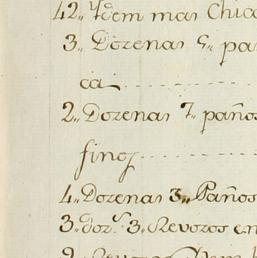 42,, Ydem mas Chic
3,, Dozenas 5,, pa
ca
2,, Dozenas 7,, paños
fino,,
4,, Dozenas 3,, Paños
3,, doz.s 3,, Revozos en